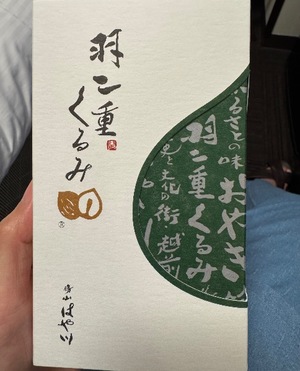 ふるさとの味
おやき
羽二重くるみ
史と文化の街・越前
羽二重
くるみ
勝山
はや川